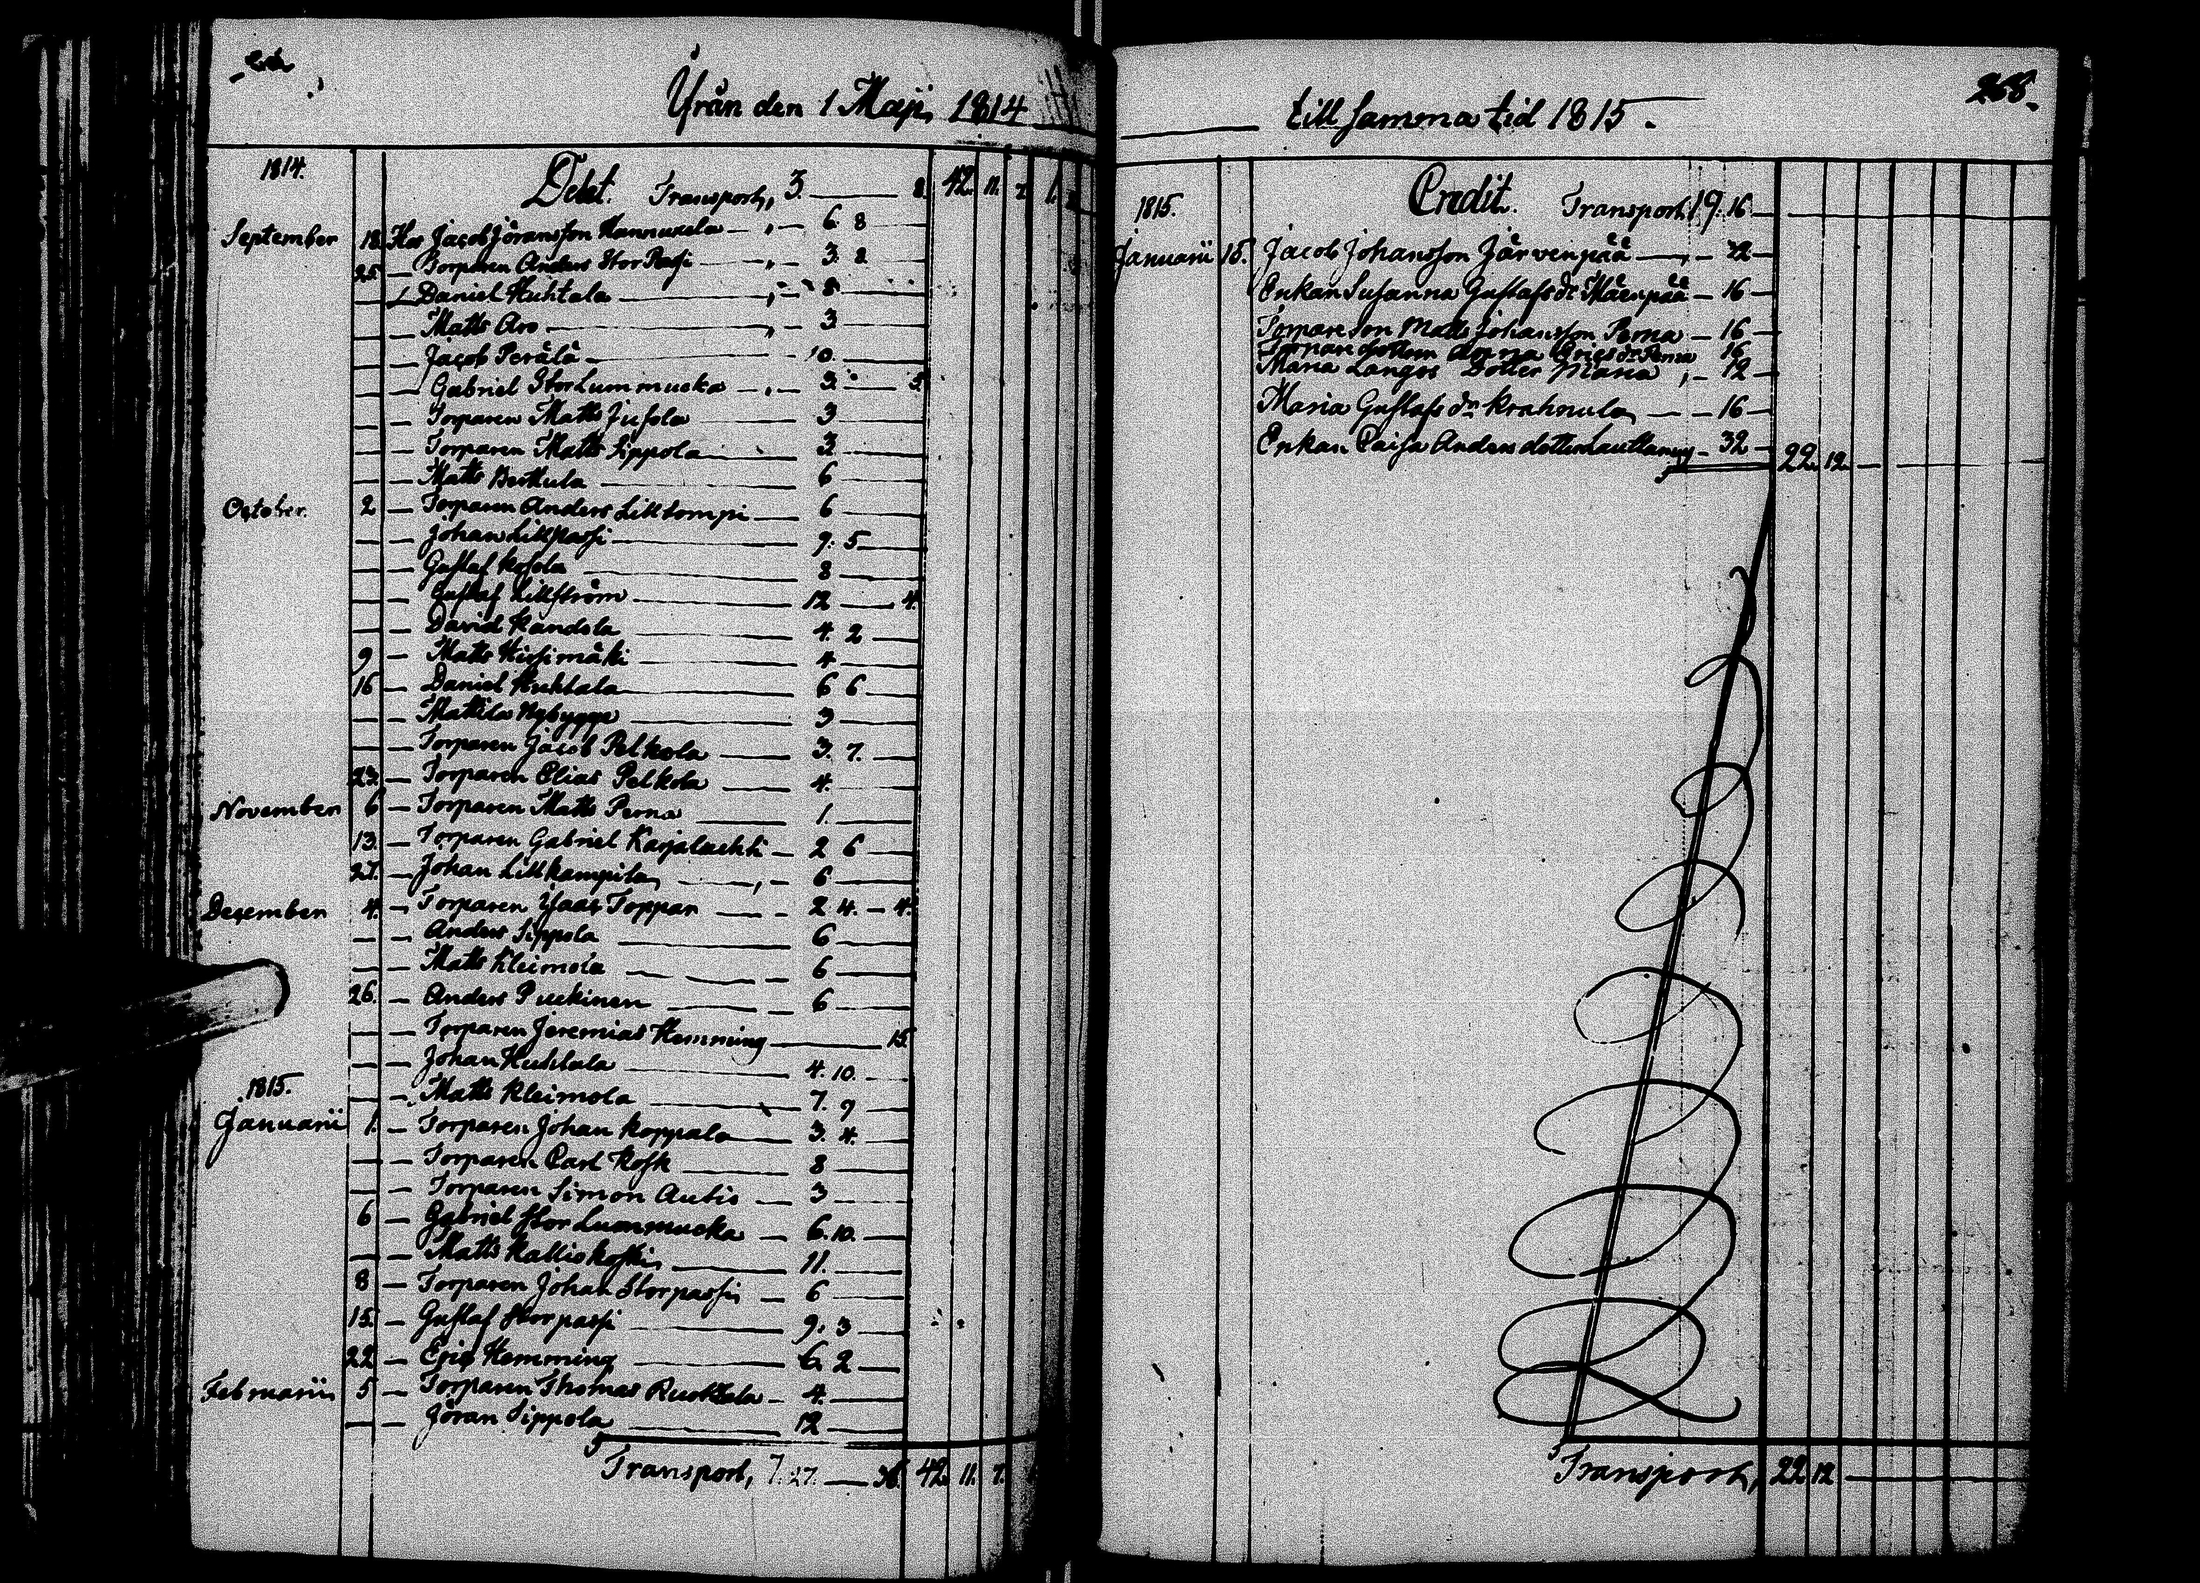 Från den 1 Maji, 1814
1814.
Debet. Transport, 3. — 8. 42. 11. 7. 1.
September 18. Hos Jacob Jöransson Hannuxela — 6 8
25. — Torparen Anders Stor Pasi — 3. 8
— Daniel Huhtala — 8
— — Matts Aro — 3
— — Jacob Perälä — 10
— — Gabriel Stor Lummucka — 3 — 3
— — Torparen Matts Jusola — 3
— — Torparen Matts Sippola — 3
— — Matts Berttula — 6
October. 2 — Torparen Anders Lilltompi — 6
— — Johan Lillpassi — 9. 5
— — Gustaf Kosola — 8
— — Gustaf Lillström — 12 — 4.
— — David Kandola — 4. 2
9 — Matts Hirsimäki — 4
16 — Daniel Huhtala — 6 6
— — Mattila Nybygge — 3
— — Torparen Jacob Pelkola — 3. 7.
23. — Torparen Elias Pelkola — 4.
November 6 — Torparen Matts Perna — 1.
13. — Torparen Gabriel Karjalachti — 2 6
27. — Johan Lillkampila — 6
December 4. — Torparen Isaac Toppar — 2 4. — 4.
— — Anders Sippola — 6
— — Matts Kleimola — 6
26. — Anders Puckinen — 6
— — Torparen Jeremias Hemming — 15.
— — Johan Huhtala — 4. 10.
1815.
— — Matts Kleimola — 7. 9
Januarii 1. — Torparen Johan Koppala — 3. 4.
— — Torparen Carl Kosk — 8
— — Torparen Simon Autio — 3
6 — Gabriel Stor Lummucka — 6. 10.
— — Matts Kallioköski — 11.
8 — Torparen Johan Storpassi — 6
15. — Gustaf Storpassi — 9. 3
22 — Eric Hemming — 6. 2
Februarii 5 — Torparen Thomas Ruokkala — 4.
— — Jöran Sippola — 12
Transport, 7. 27. — 38. 42. 11. 7.
till samma tid 1815.
268.
1815.
Credit. Transport 19. 16
Januarii 15. Jacob Johansson Järvenpää — 32
Enkan Susanna Gustafs dr Mäenpää — 16
Torpare Son Matts Johansson Perna — 16
Torpare dottern Anna Erics dr Perna 16
Maria Langos Dotter Maria, — 12
Maria Gustafs dr Krahnula — 16
Enkan Caisa Anders dotter — 32 — 22. 12.
Transport, 22 12